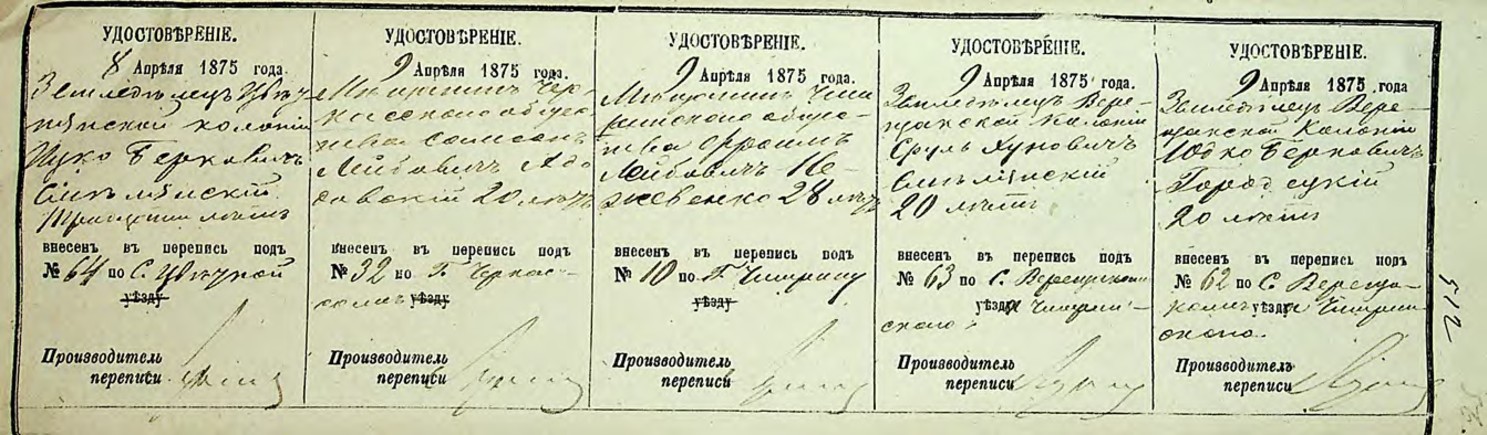 УДОСТОВѢРЕНІЕ.
8 Апрѣля 1875 года.
Земледѣлецъ
колоніи
Ицко Берковичъ
лѣтъ
внесенъ въ перепись подъ
№ 64 по С.
уѣзду
Производитель
переписи
УДОСТОВѢРЕНІЕ.
9 Апрѣля 1875 года.
Мѣщанинъ Чер-
касскаго общес-
тва Самсонъ
Лейбовичъ
20 лѣтъ
внесенъ въ перепись подъ
№ 32 по Г. Черкас-
самъ уѣзду
Производитель
переписи
УДОСТОВѢРЕНІЕ.
9 Апрѣля 1875 года.
Мѣщанинъ Чиги-
ринскаго общес-
тва Фроимъ
Лейбовичъ
28 лѣтъ
внесенъ въ перепись подъ
№ 10 по Г. Чигрину
уѣзду
Производитель
переписи
УДОСТОВѢРЕНІЕ.
9 Апрѣля 1875 года.
Земледѣлецъ Вере-
щакской Колоніи
Сруль Хуновичъ
20 лѣтъ
внесенъ въ перепись подъ
№ 63 по С.
уѣзда Чигрин-
скаго.
Производитель
переписи
УДОСТОВѢРЕНІЕ.
9 Апрѣля 1875 года
Земледѣлецъ Вере-
щакской Колоніи
Юдко Берковичъ
Городецкій
20 лѣтъ
внесенъ въ перепись подъ
№ 62 по С. Вереща-
камъ уѣзда Чигрин-
скаго.
Производитель
переписи
512